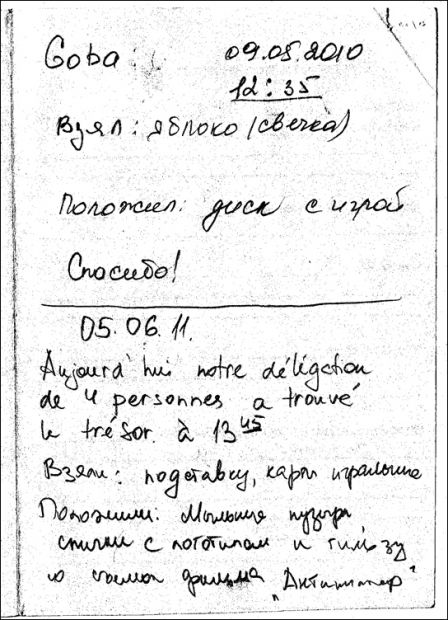 Goba: 09.05.2010
12:35
Взял: яблоко (свечка)
Положил: диск с игрой
Спасибо!
05.06.11.
Aujourd'hui notre délégation
de 4 personnes a trouvé
le trésor à 13 45
Взяли: подставку, карты игральные
Положили: Мыльные пузыри,
спички с логотипом и гильзу
со съемок фильма "Антиснайпер"